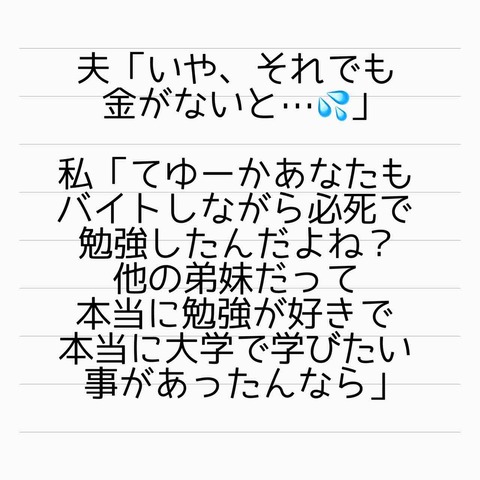 夫「いや、それでも
金がないと…💦」
私「てゆーかあなたも
バイトしながら必死で
勉強したんだよね？
他の弟妹だって
本当に勉強が好きで
本当に大学で学びたい
事があったんなら」